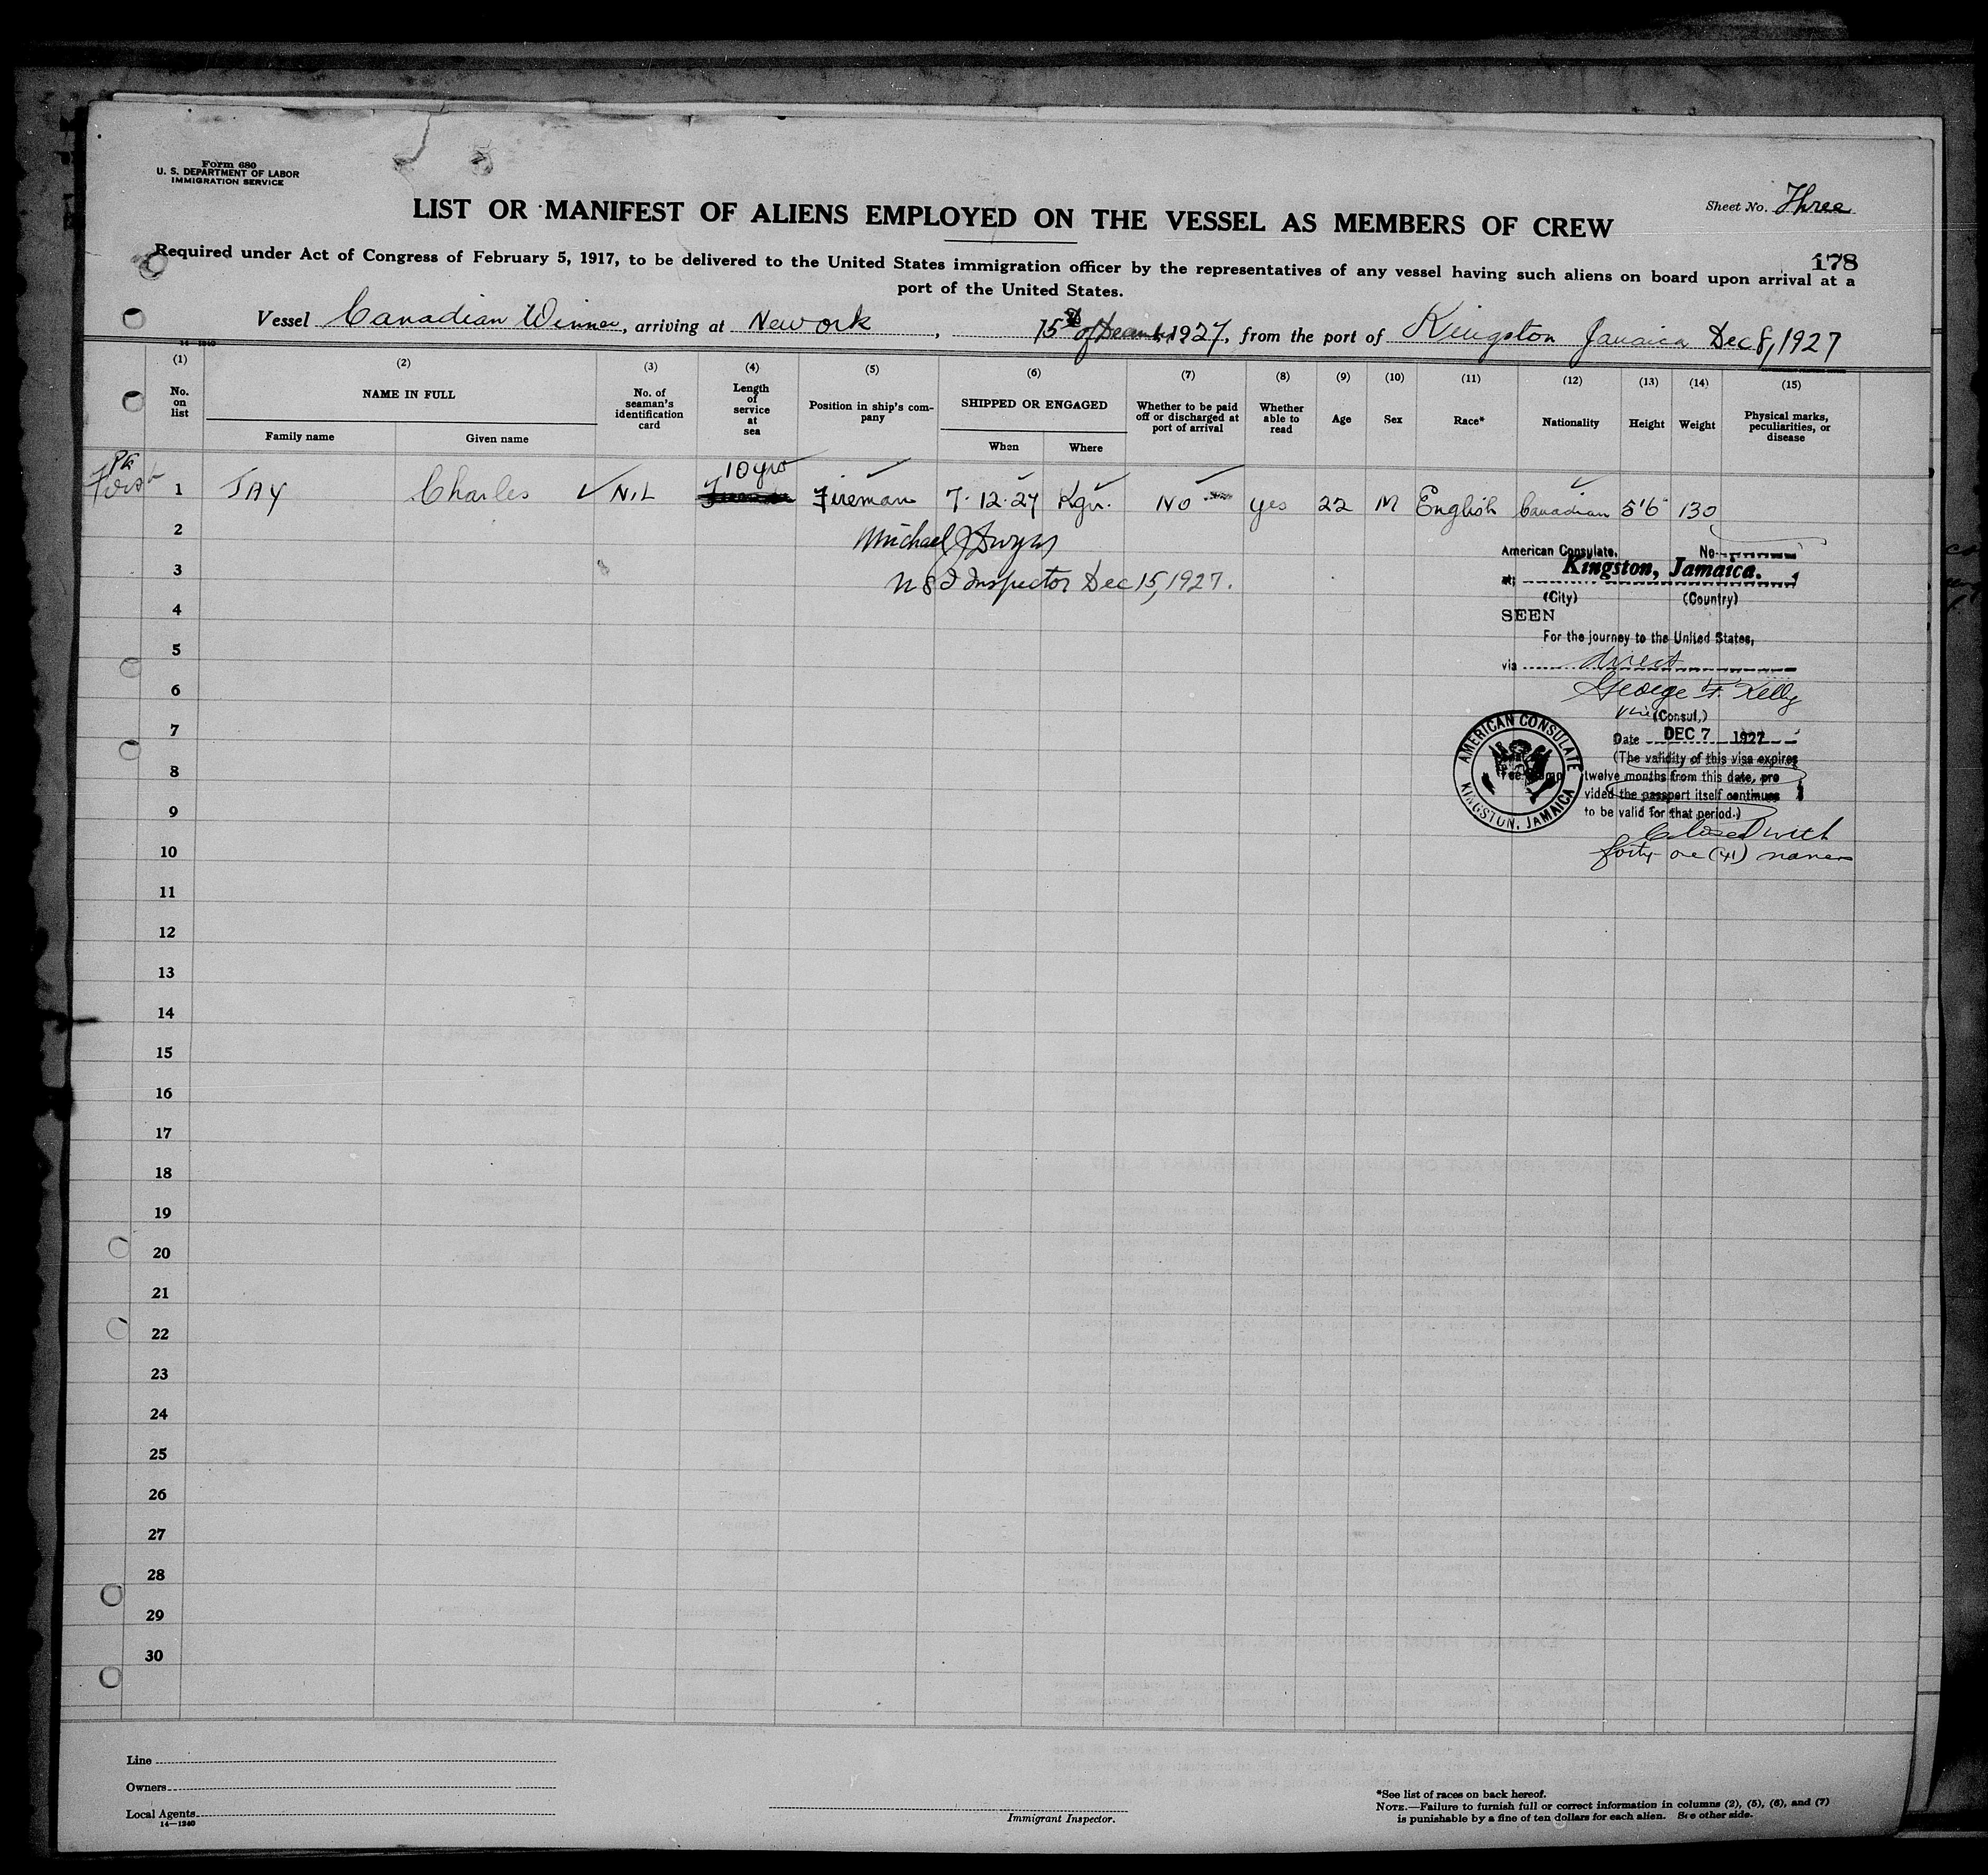 Form 680
U. S. DEPARTMENT OF LABOR
IMMIGRATION SERVICE
Sheet No. Three
LIST OR MANIFEST OF ALIENS EMPLOYED ON THE VESSEL AS MEMBERS OF CREW
178
Required under Act of Congress of February 5, 1917, to be delivered to the United States immigration officer by the representatives of any vessel having such aliens on board upon arrival at a
port of the United States.
Vessel Canadian Winner, arriving at New ork, 15th of December 1927, from the port of Kingston Jamaica Dec 8, 1927
(1) (2) (3) (4) (5) (6) (7) (8) (9) (10) (11) (12) (13) (14) (15)
No. on list
NAME IN FULL
Family name
Given name
No. of seaman's identification card
Length of service at sea
Position in ship's com-pany
SHIPPED OR ENGAGED
When
Where
Whether to be paid off or discharged at port of arrival
Whether able to read
Age
Sex
Race*
Nationality
Height
Weight
Physical marks, peculiarities, or disease
10 yrs
1 JAY Charles ✓ NIL Fireman 7.12.27 Kgn. No yes 22 M English Canadian 5'6" 130
2 Michael J Dwyer
3 Inspector Dec 15, 1927.
4
5
6
7
8
9
10
11
12
13
14
15
16
17
18
19
20
21
22
23
24
25
26
27
28
29
30
American Consulate, No.
at; Kingston, Jamaica.
(City) (Country)
SEEN
For the journey to the United States,
via direct
George F. Kelly
Vice (Consul,)
Date DEC 7 1927
(The validity of this visa expires
twelve months from this date, pro
vided the passport itself continues
to be valid for that period.)
AMERICAN CONSULATE
KINGSTON, JAMAICA
Closed with
forty-one (41) names
Line
Owners
Local Agents
14—1240
Immigrant Inspector.
*See list of races on back hereof.
NOTE.—Failure to furnish full or correct information in columns (2), (5), (6), and (7)
is punishable by a fine of ten dollars for each alien. See other side.